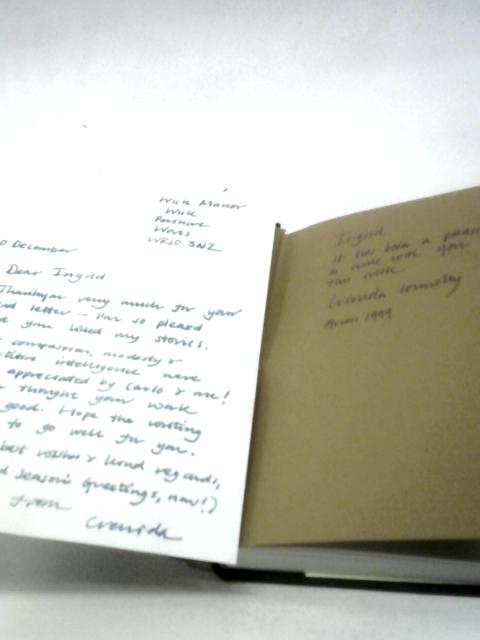 Wick Manor
Wick
Pershore
Worcs
WR10 3NZ
0 December
Dear Ingrid
Thankyou very much for your
nd letter – I'm so pleased
t you liked my stories.
compassion, modesty &
sitive intelligence were
appreciated by Carlo & me!
thought your work
good. Hope the writing
to go well for you.
best wishes & kind regards,
d Season's Greetings, now!)
from
Cressida
Ingrid
It has been a pleasure
to work with you
this week.
Cressida Connolly
Arvon 1999